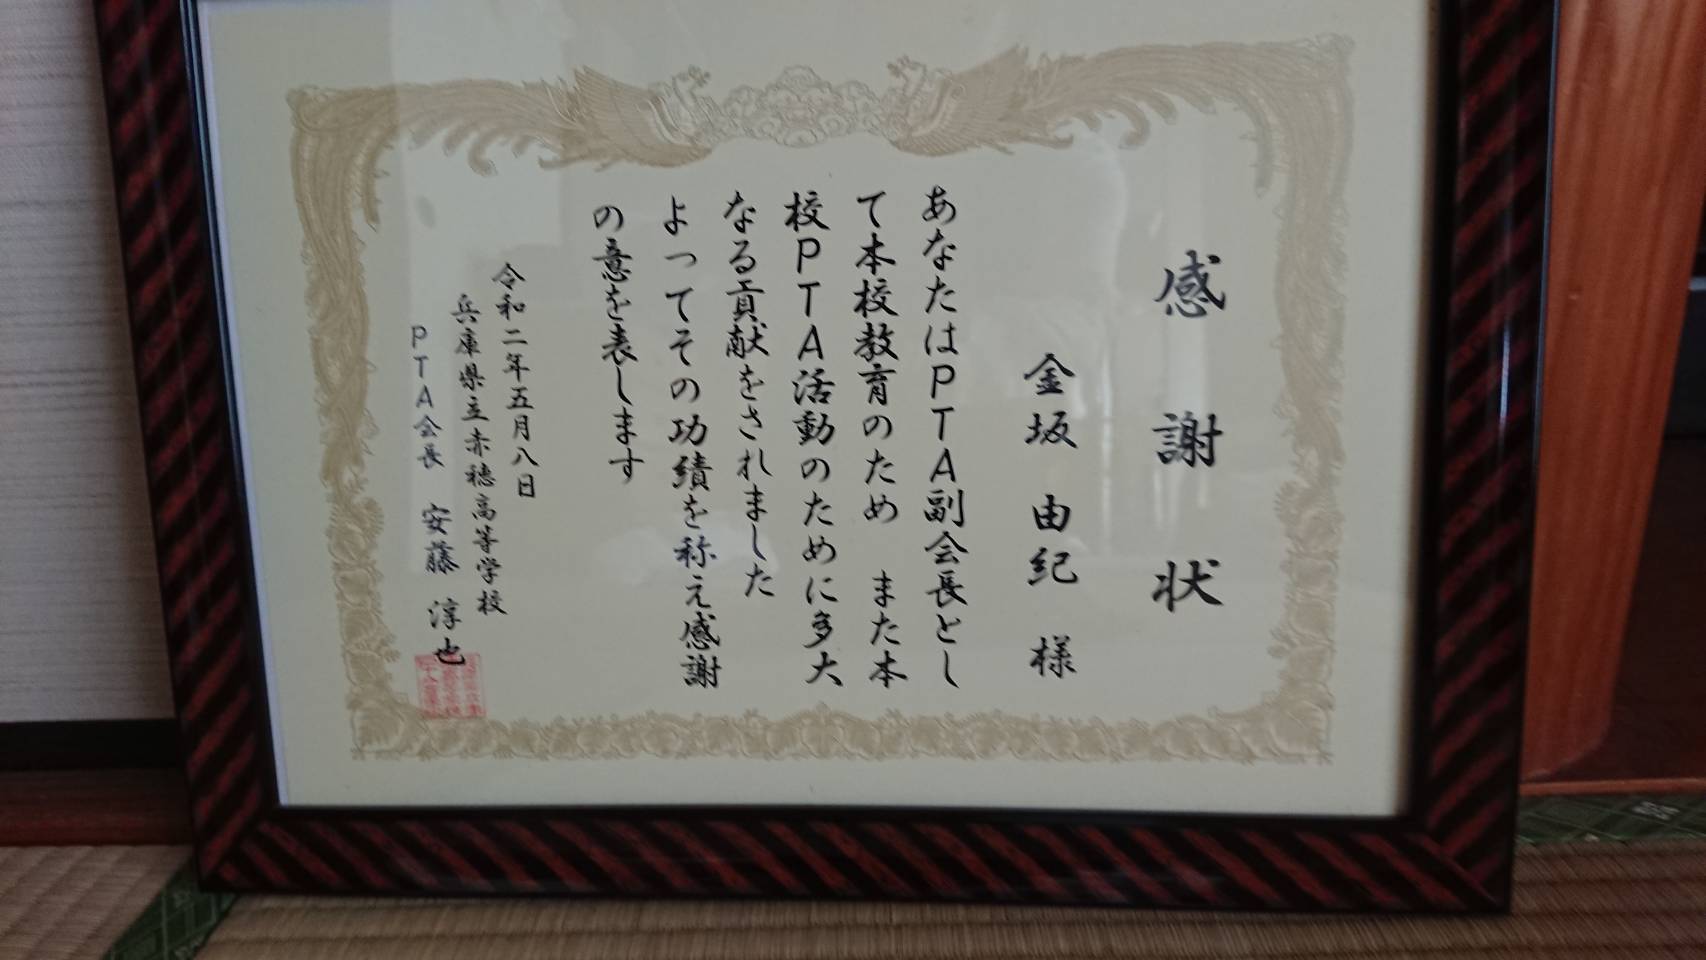 感謝状
金坂 由紀 様
あなたはPTA副会長とし
て本校教育のため また本
校PTA活動のために多大
なる貢献をされました
よってその功績を称え感謝
の意を表します
令和二年五月八日
兵庫県立赤穂高等学校
PTA会長 安藤 淳也